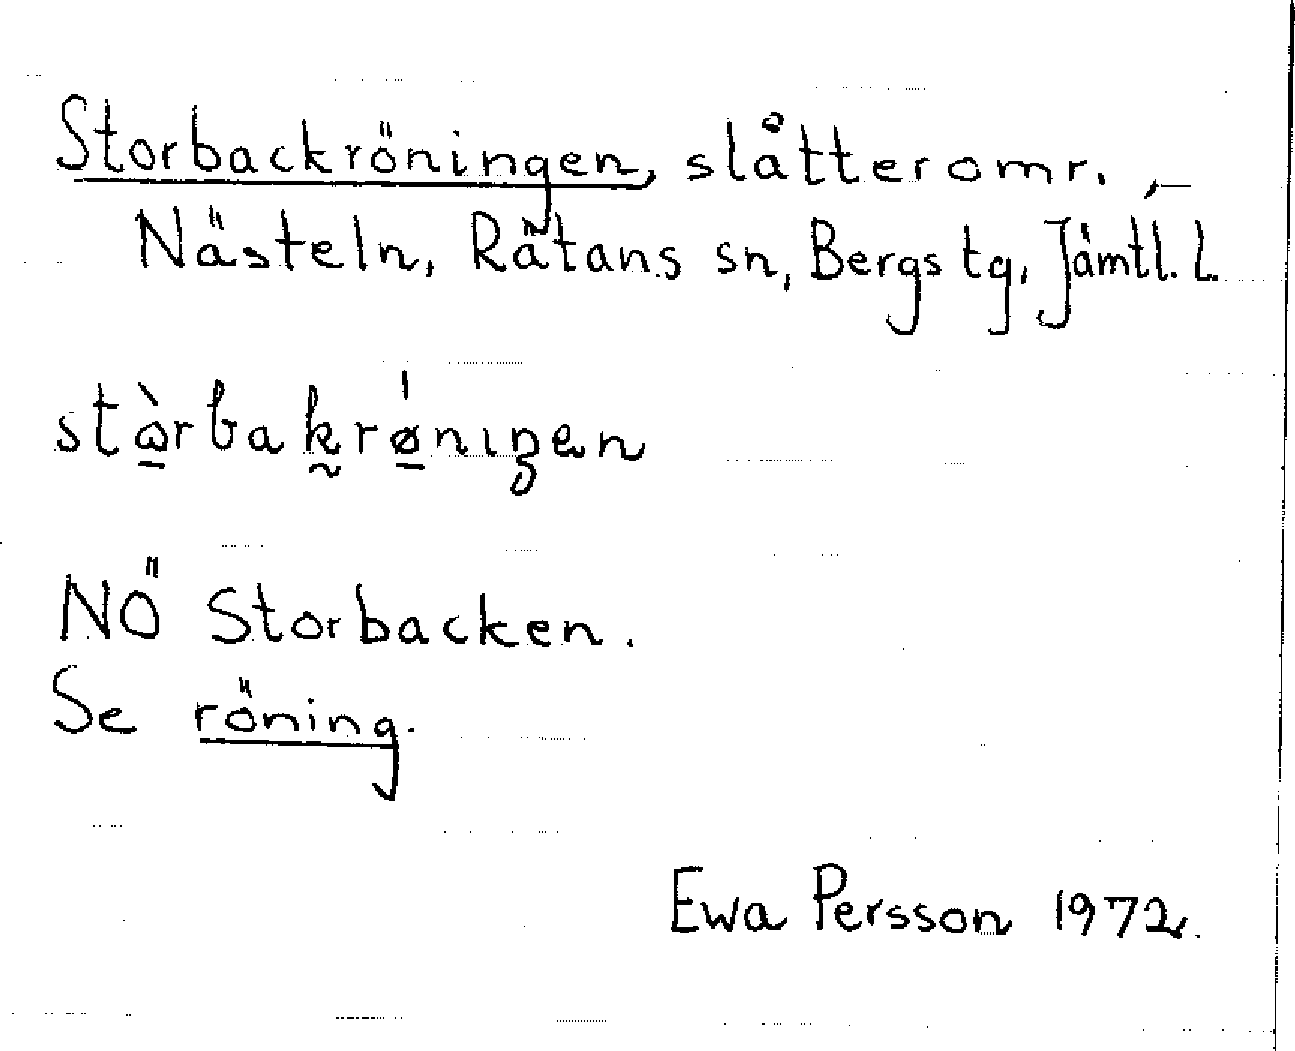 Storbackröningen, slåtteromr.
Nästeln, Rätans sn, Bergs tg, Jämtl. L.
stɷ̠̀rbak̰rǿ̠nıŋen
NÖ Storbacken.
Se röning.
Ewa Persson 1972.